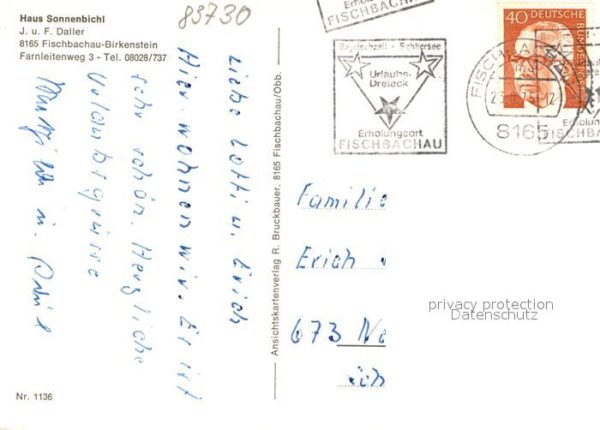 Haus Sonnenbichl
J. u. F. Daller
8165 Fischbachau-Birkenstein
Farnleitenweg 3 - Tel. 08028/737
83730
Liebe Lotti u. Erich
Hier wohnen wir. Es ist
sehr schön. Herzliche
Urlaubsgrüsse
u.
Nr. 1136
Ansichtskartenverlag R. Bruckbauer, 8165 Fischbachau/Obb.
FISCHBACHAU
Bayrischzell - Schliersee
Urlaubs-
Dreieck
Erholungsort
FISCHBACHAU
40 DEUTSCHE BUNDESPOST
8165
FISCHBACHAU
Familie
Erich
673 Ne
privacy protection
Datenschutz